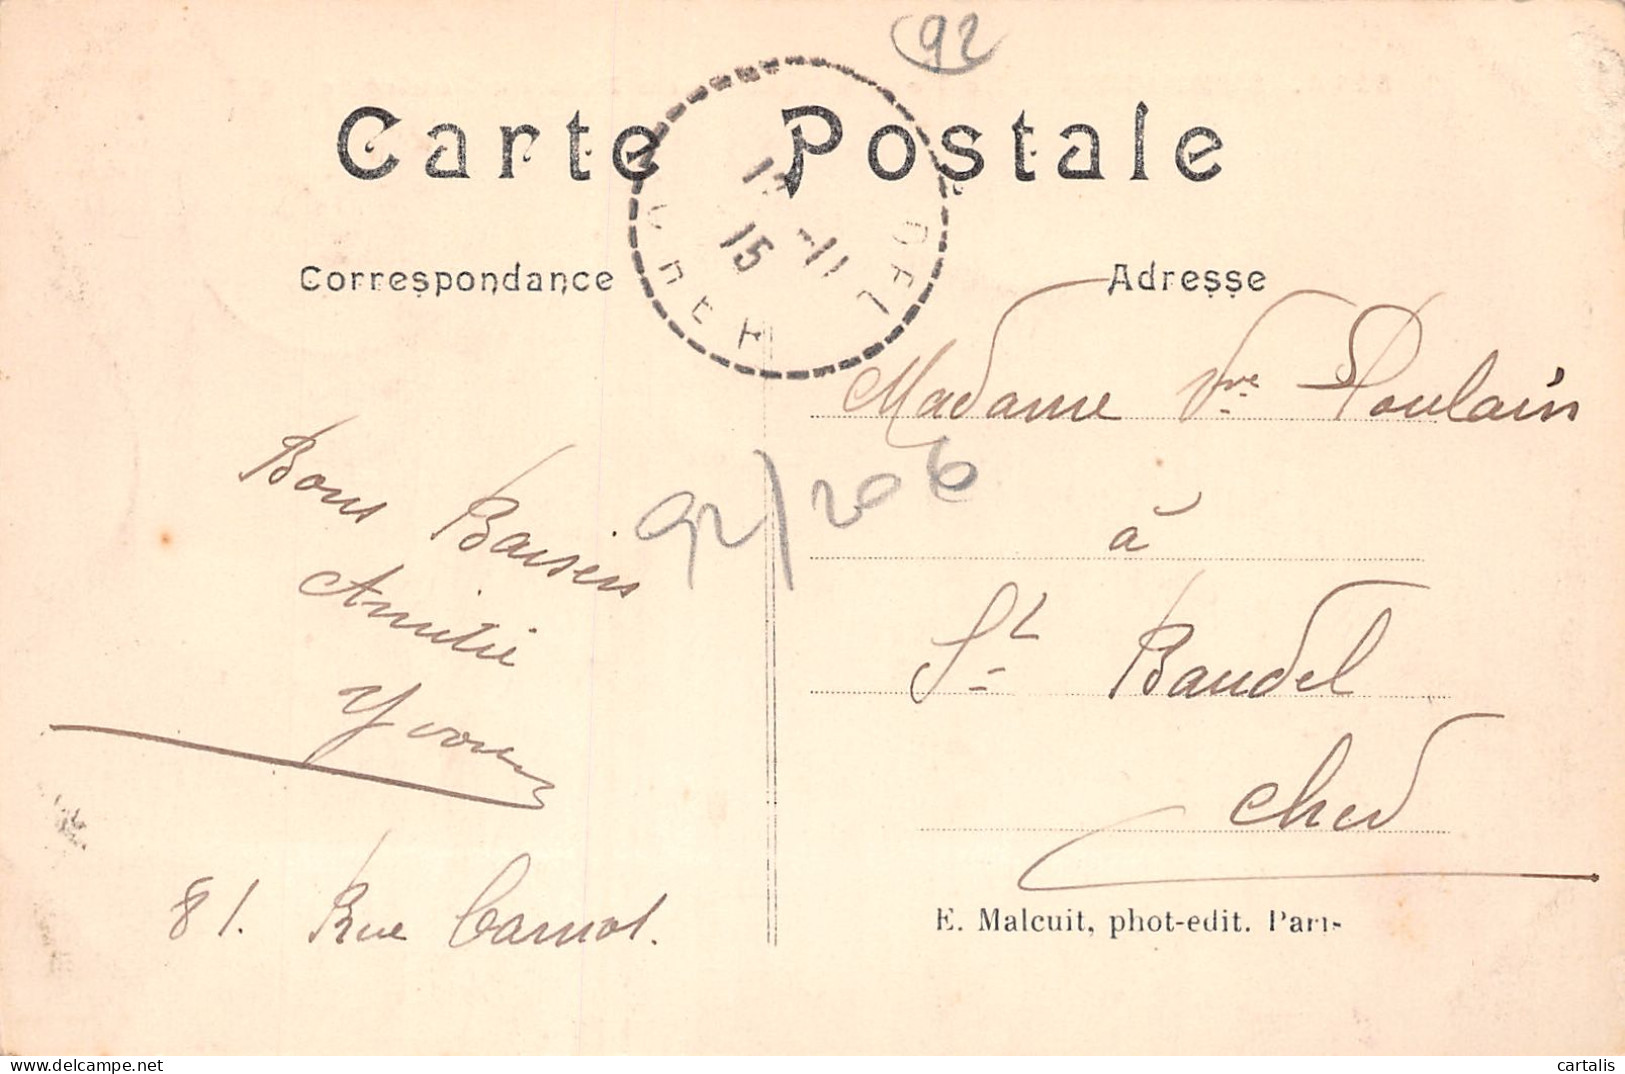 92
Carte Postale
15 -11
15
Correspondance
Adresse
CHER
Madame Vve Poulain
à
St Baudel
Cher
Bons Baisers
Amitié
Yvonne
92/206
81. Rue Carnot.
E. Malcuit, phot-edit. Paris
cartalis
delcampe.net